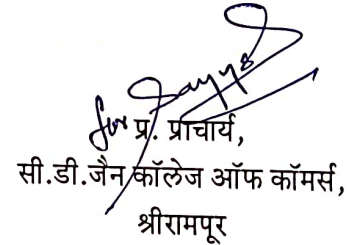 for
प्र. प्राचार्य,
सी.डी.जैन कॉलेज ऑफ कॉमर्स,
श्रीरामपूर